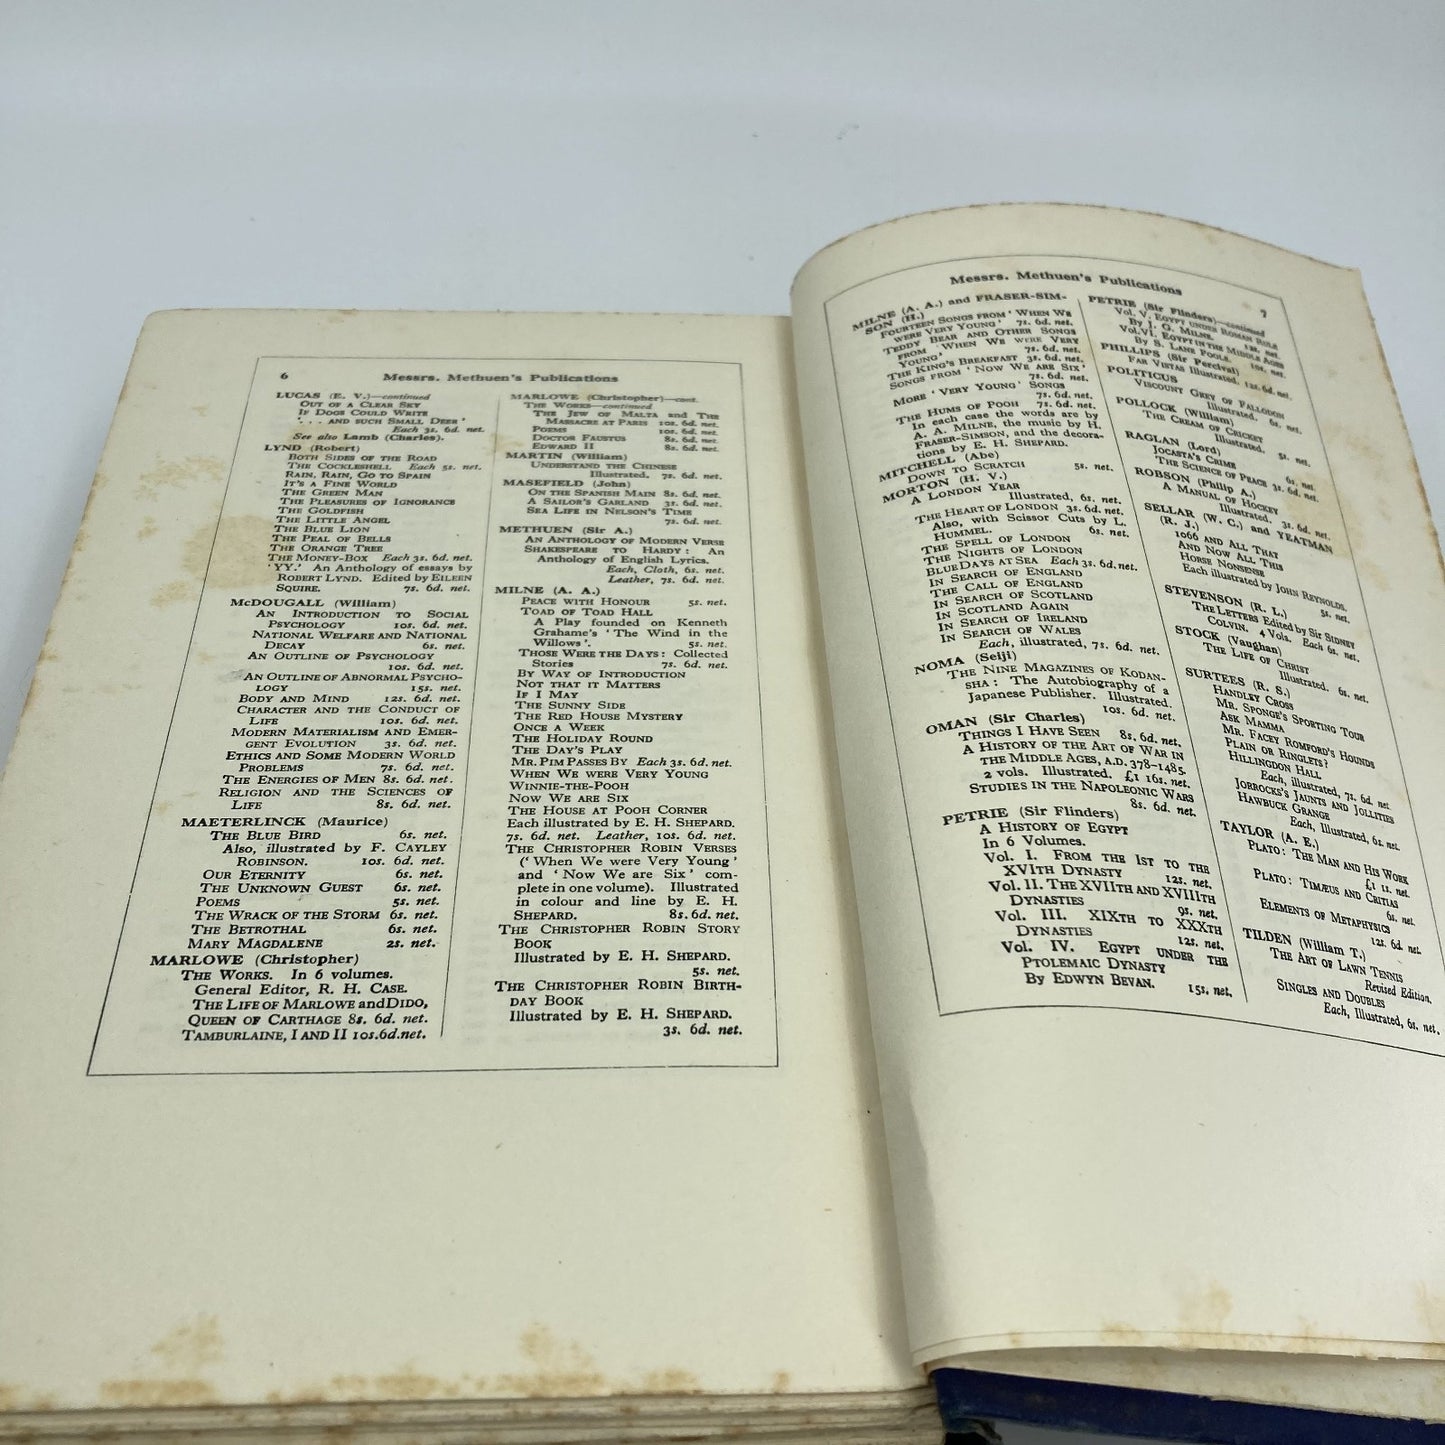 6 Messrs. Methuen's Publications
LUCAS (E. V.)—continued
OUT OF A CLEAR SKY
IF DOGS COULD WRITE
'. . . AND SUCH SMALL DEER'
Each 3s. 6d. net.
See also Lamb (Charles).
LYND (Robert)
BOTH SIDES OF THE ROAD
THE COCKLESHELL Each 5s. net.
RAIN, RAIN, GO TO SPAIN
IT'S A FINE WORLD
THE GREEN MAN
THE PLEASURES OF IGNORANCE
THE GOLDFISH
THE LITTLE ANGEL
THE BLUE LION
THE PEAL OF BELLS
THE ORANGE TREE
THE MONEY-BOX Each 3s. 6d. net.
'YY.' An Anthology of essays by
ROBERT LYND. Edited by EILEEN
SQUIRE. 7s. 6d. net.
McDOUGALL (William)
AN INTRODUCTION TO SOCIAL
PSYCHOLOGY 10s. 6d. net.
NATIONAL WELFARE AND NATIONAL
DECAY 6s. net.
AN OUTLINE OF PSYCHOLOGY
10s. 6d. net.
AN OUTLINE OF ABNORMAL PSYCHO-
LOGY 15s. net.
BODY AND MIND 12s. 6d. net.
CHARACTER AND THE CONDUCT OF
LIFE 10s. 6d. net.
MODERN MATERIALISM AND EMER-
GENT EVOLUTION 3s. 6d. net.
ETHICS AND SOME MODERN WORLD
PROBLEMS 7s. 6d. net.
THE ENERGIES OF MEN 8s. 6d. net.
RELIGION AND THE SCIENCES OF
LIFE 8s. 6d. net.
MAETERLINCK (Maurice)
THE BLUE BIRD 6s. net.
Also, illustrated by F. CAYLEY
ROBINSON. 10s. 6d. net.
OUR ETERNITY 6s. net.
THE UNKNOWN GUEST 6s. net.
POEMS 5s. net.
THE WRACK OF THE STORM 6s. net.
THE BETROTHAL 6s. net.
MARY MAGDALENE 2s. net.
MARLOWE (Christopher)
THE WORKS. In 6 volumes.
General Editor, R. H. CASE.
THE LIFE OF MARLOWE and DIDO,
QUEEN OF CARTHAGE 8s. 6d. net.
TAMBURLAINE, I AND II 10s.6d.net.
MARLOWE (Christopher)—cont.
THE WORKS—continued
THE JEW OF MALTA and THE
MASSACRE AT PARIS 10s. 6d. net.
POEMS 10s. 6d. net.
DOCTOR FAUSTUS 8s. 6d. net.
EDWARD II 8s. 6d. net.
MARTIN (William)
UNDERSTAND THE CHINESE
Illustrated. 7s. 6d. net.
MASEFIELD (John)
ON THE SPANISH MAIN 8s. 6d. net.
A SAILOR'S GARLAND 3s. 6d. net.
SEA LIFE IN NELSON'S TIME
7s. 6d. net.
METHUEN (Sir A.)
AN ANTHOLOGY OF MODERN VERSE
SHAKESPEARE TO HARDY : An
Anthology of English Lyrics.
Each, Cloth, 6s. net.
Leather, 7s. 6d. net.
MILNE (A. A.)
PEACE WITH HONOUR 5s. net.
TOAD OF TOAD HALL
A Play founded on Kenneth
Grahame's 'The Wind in the
Willows'. 5s. net.
THOSE WERE THE DAYS : Collected
Stories 7s. 6d. net.
BY WAY OF INTRODUCTION
NOT THAT IT MATTERS
IF I MAY
THE SUNNY SIDE
THE RED HOUSE MYSTERY
ONCE A WEEK
THE HOLIDAY ROUND
THE DAY'S PLAY
MR. PIM PASSES BY Each 3s. 6d. net.
WHEN WE WERE VERY YOUNG
WINNIE-THE-POOH
NOW WE ARE SIX
THE HOUSE AT POOH CORNER
Each illustrated by E. H. SHEPARD.
7s. 6d. net. Leather, 10s. 6d. net.
THE CHRISTOPHER ROBIN VERSES
('When We were Very Young'
and 'Now We are Six' com-
plete in one volume). Illustrated
in colour and line by E. H.
SHEPARD. 8s. 6d. net.
THE CHRISTOPHER ROBIN STORY
BOOK
Illustrated by E. H. SHEPARD.
5s. net.
THE CHRISTOPHER ROBIN BIRTH-
DAY BOOK
Illustrated by E. H. SHEPARD.
3s. 6d. net.
Messrs. Methuen's Publications 7
MILNE (A. A.) and FRASER-SIM-
SON (H.)
FOURTEEN SONGS FROM 'WHEN WE
WERE VERY YOUNG' 7s. 6d. net.
TEDDY BEAR AND OTHER SONGS
FROM 'WHEN WE WERE VERY
YOUNG' 7s. 6d. net.
THE KING'S BREAKFAST 3s. 6d. net.
SONGS FROM 'NOW WE ARE SIX'
7s. 6d. net.
MORE 'VERY YOUNG' SONGS
7s. 6d. net.
THE HUMS OF POOH 7s. 6d. net.
In each case the words are by
A. A. MILNE, the music by H.
FRASER-SIMSON, and the decora-
tions by E. H. SHEPARD.
MITCHELL (Abe)
DOWN TO SCRATCH 5s. net.
MORTON (H. V.)
A LONDON YEAR
Illustrated, 6s. net.
THE HEART OF LONDON 3s. 6d. net.
Also, with Scissor Cuts by L.
HUMMEL. 6s. net.
THE SPELL OF LONDON
THE NIGHTS OF LONDON
BLUE DAYS AT SEA Each 3s. 6d. net.
IN SEARCH OF ENGLAND
THE CALL OF ENGLAND
IN SEARCH OF SCOTLAND
IN SCOTLAND AGAIN
IN SEARCH OF IRELAND
IN SEARCH OF WALES
Each, illustrated, 7s. 6d. net.
NOMA (Seiji)
THE NINE MAGAZINES OF KODAN-
SHA : The Autobiography of a
Japanese Publisher. Illustrated.
10s. 6d. net.
OMAN (Sir Charles)
THINGS I HAVE SEEN 8s. 6d. net.
A HISTORY OF THE ART OF WAR IN
THE MIDDLE AGES, A.D. 378–1485.
2 vols. Illustrated. £1 16s. net.
STUDIES IN THE NAPOLEONIC WARS
8s. 6d. net.
PETRIE (Sir Flinders)
A HISTORY OF EGYPT
In 6 Volumes.
Vol. I. FROM THE IST TO THE
XVITH DYNASTY 12s. net.
Vol. II. THE XVIITH AND XVIIITH
DYNASTIES 9s. net.
Vol. III. XIXTH TO XXXTH
DYNASTIES 12s. net.
Vol. IV. EGYPT UNDER THE
PTOLEMAIC DYNASTY
By EDWYN BEVAN. 15s. net.
PETRIE (Sir Flinders)—continued
Vol. V. EGYPT UNDER ROMAN RULE
By J. G. MILNE. 12s. net.
Vol. VI. EGYPT IN THE MIDDLE AGES
By S. LANE POOLE. 10s. net.
PHILLIPS (Sir Percival)
FAR VISTAS Illustrated. 12s. 6d. net.
POLITICUS
VISCOUNT GREY OF FALLODON
Illustrated. 6s. net.
POLLOCK (William)
THE CREAM OF CRICKET
Illustrated. 5s. net.
RAGLAN (Lord)
JOCASTA'S CRIME 6s. net.
THE SCIENCE OF PEACE 3s. 6d. net.
ROBSON (Philip A.)
A MANUAL OF HOCKEY
Illustrated. 3s. 6d. net.
SELLAR (W. C.) and YEATMAN
(R. J.)
1066 AND ALL THAT
AND NOW ALL THIS
HORSE NONSENSE
Each illustrated by JOHN REYNOLDS.
5s. net.
STEVENSON (R. L.)
THE LETTERS Edited by Sir SIDNEY
COLVIN. 4 Vols. Each 6s. net.
STOCK (Vaughan)
THE LIFE OF CHRIST
Illustrated. 6s. net.
SURTEES (R. S.)
HANDLEY CROSS
MR. SPONGE'S SPORTING TOUR
ASK MAMMA
MR. FACEY ROMFORD'S HOUNDS
PLAIN OR RINGLETS?
HILLINGDON HALL
Each, illustrated, 7s. 6d. net.
JORROCKS'S JAUNTS AND JOLLITIES
HAWBUCK GRANGE
Each, Illustrated, 6s. net.
TAYLOR (A. E.)
PLATO : THE MAN AND HIS WORK
£1 1s. net.
PLATO : TIMÆUS AND CRITIAS
6s. net.
ELEMENTS OF METAPHYSICS
12s. 6d. net.
TILDEN (William T.)
THE ART OF LAWN TENNIS
Revised Edition.
SINGLES AND DOUBLES
Each, Illustrated, 6s. net.